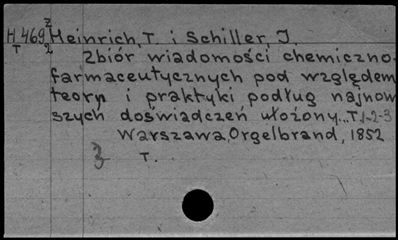 z
H 469 Heinrich, T. i Schiller, J.
T 2 Zbiór wiadomości chemiczno-
farmaceutycznych pod względem
teoryi i praktyki podług najnow
szych doświadczeń ułożony...T.1-2-3
Warszawa, Orgelbrand, 1852
3 T.